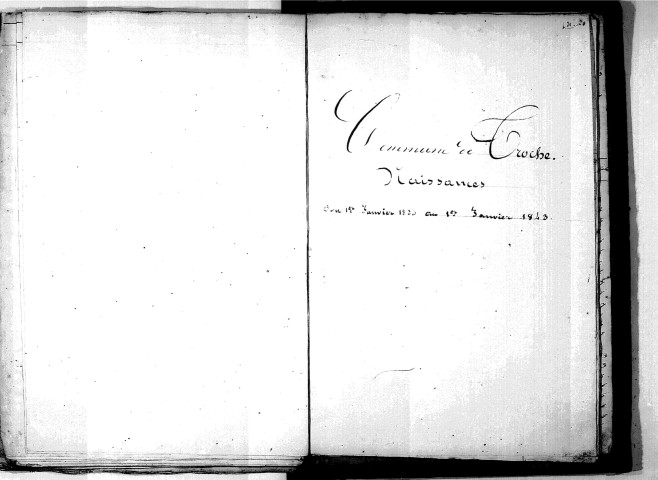 Commune de Troche.
Naissances
du 1er Janvier 18 au 1er Janvier 1843.